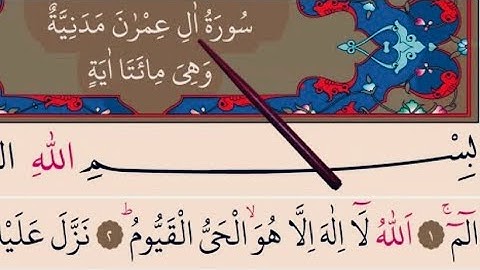 سُورَةُ اٰلِ عِمْرٰنَ مَدَنِيَّةٌ
وَهِيَ مِائَتَا اٰيَةٍ
بِسْمِ اللهِ
الٓمٓ ۚ ﴿١﴾ اَللهُ لَٓا اِلٰهَ اِلَّا هُوَ ۙ الْحَيُّ الْقَيُّومُ ؕ ﴿٢﴾ نَزَّلَ